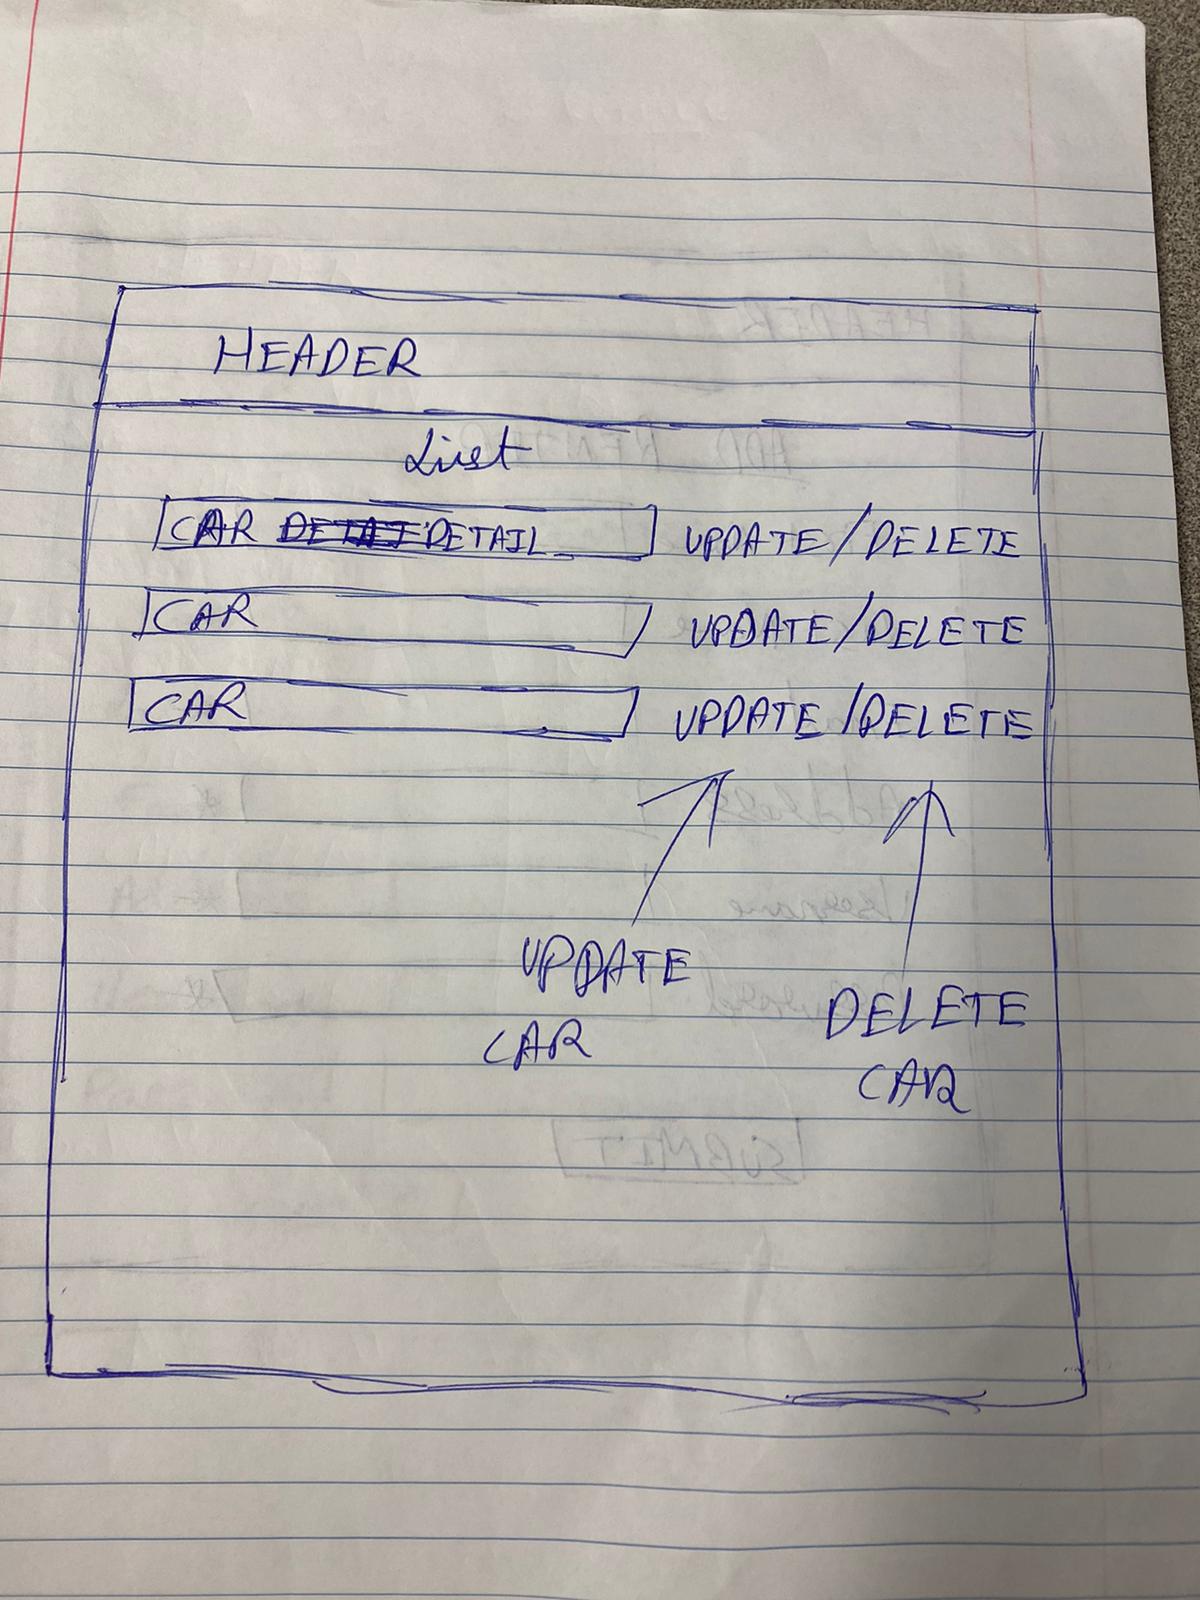 HEADER
List
CAR DETAIL UPDATE/DELETE
CAR UPDATE/DELETE
CAR UPDATE/DELETE
UPDATE
CAR
DELETE
CAR